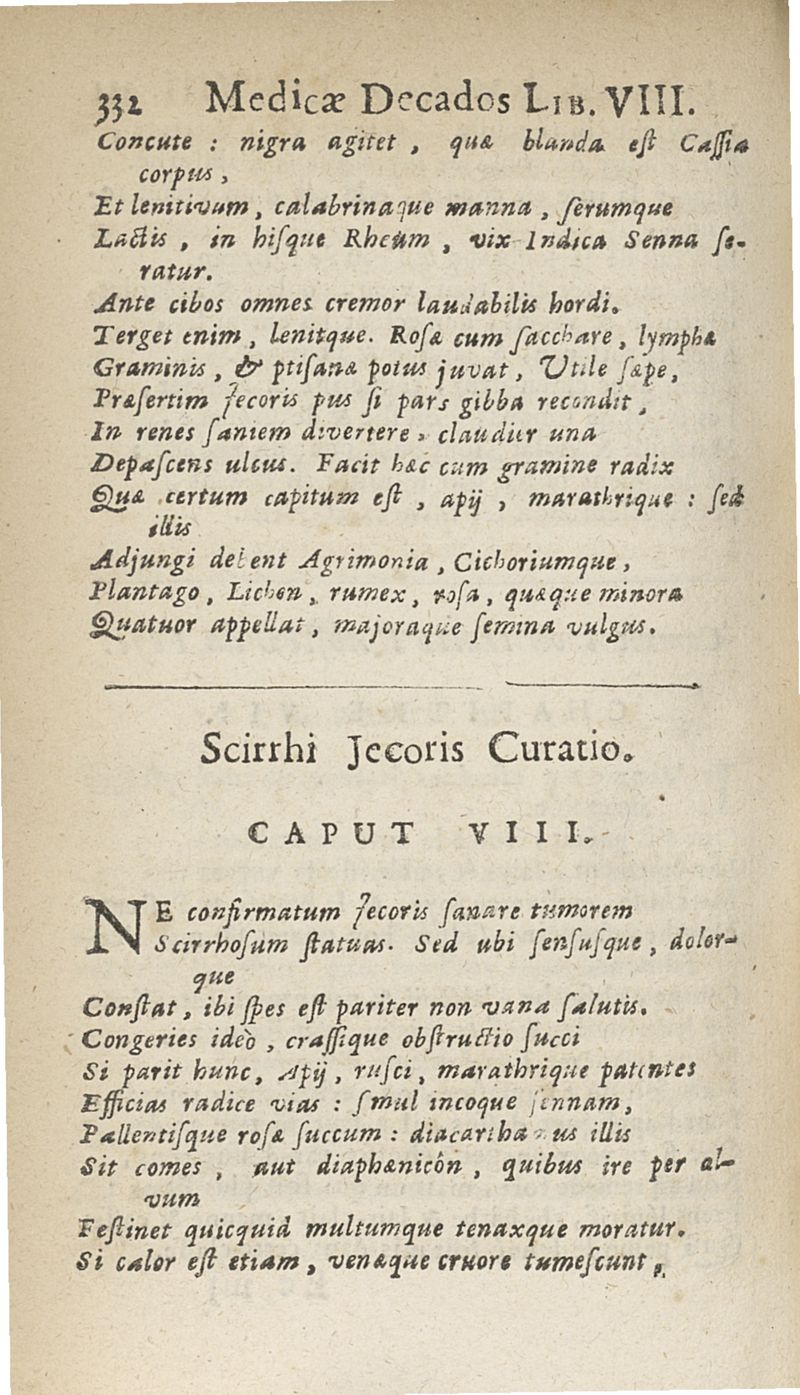 332 Medicæ Decados LIB. VIII.
Concute : nigra agitet , quæ blanda est Cassia
corpus ,
Et lenitivum , calabrinaque manna , serumque
Lactis , in hisque Rheum , vix Indica Senna se-
ratur.
Ante cibos omnes cremor laudabilis hordi.
Terget enim , lenitque. Rosæ cum sacchare , lymphæ
Graminis , & ptisanæ potus juvat , Utile sæpe ,
Præsertim Jecoris pus si pars gibba recondit ,
In renes saniem divertere , claudier una
Depascens ulcus. Facit hæc cum gramine radix
Quæ certum capitum est , apij , marathrique : sed
illis
Adjungi debent Agrimonia , Cichoriumque ,
Plantago , Lichen , rumex , rosa , quæque minora
Quatuor appellat , majoraque semina vulgus.
Scirrhi Jecoris Curatio.
CAPUT VIII.
NE confirmatum Jecoris sanare tumorem
Scirrhosum statuas. Sed ubi sensusque , dolor-
que
Constat , ibi spes est pariter non vana salutis.
Congeries ideò , crassique obstructio succi
Si parit hunc , Apij , rusci , marathrique patentes
Efficias radice vias : smul incoque sennam ,
Pallentisque rosæ succum : diacarthamus illis
Sit comes , aut diaphænicôn , quibus ire per al-
vum
Festinet quicquid multumque tenaxque moratur.
Si calor est etiam , venæque cruore tumescunt ,